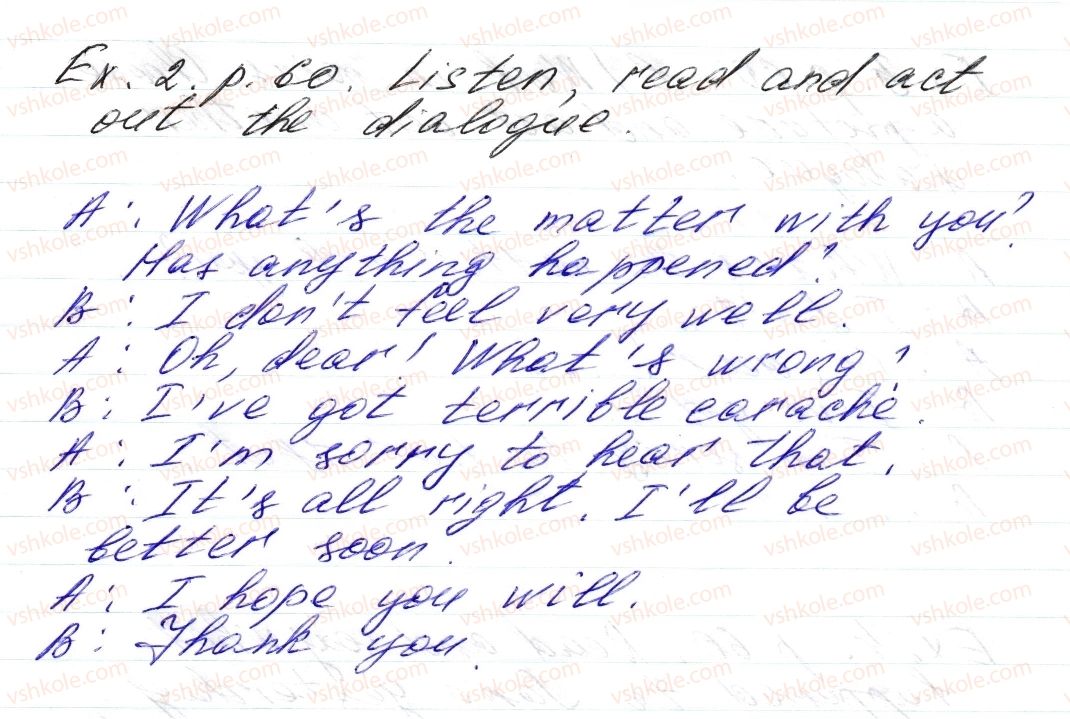 Ex. 2. p. 60. Listen, read and act
out the dialogue.
A: What's the matter with you?
Has anything happened?
B: I don't feel very well.
A: Oh, dear! What's wrong?
B: I've got terrible earache.
A: I'm sorry to hear that.
B: It's all right. I'll be
better soon.
A: I hope you will.
B: Thank you.